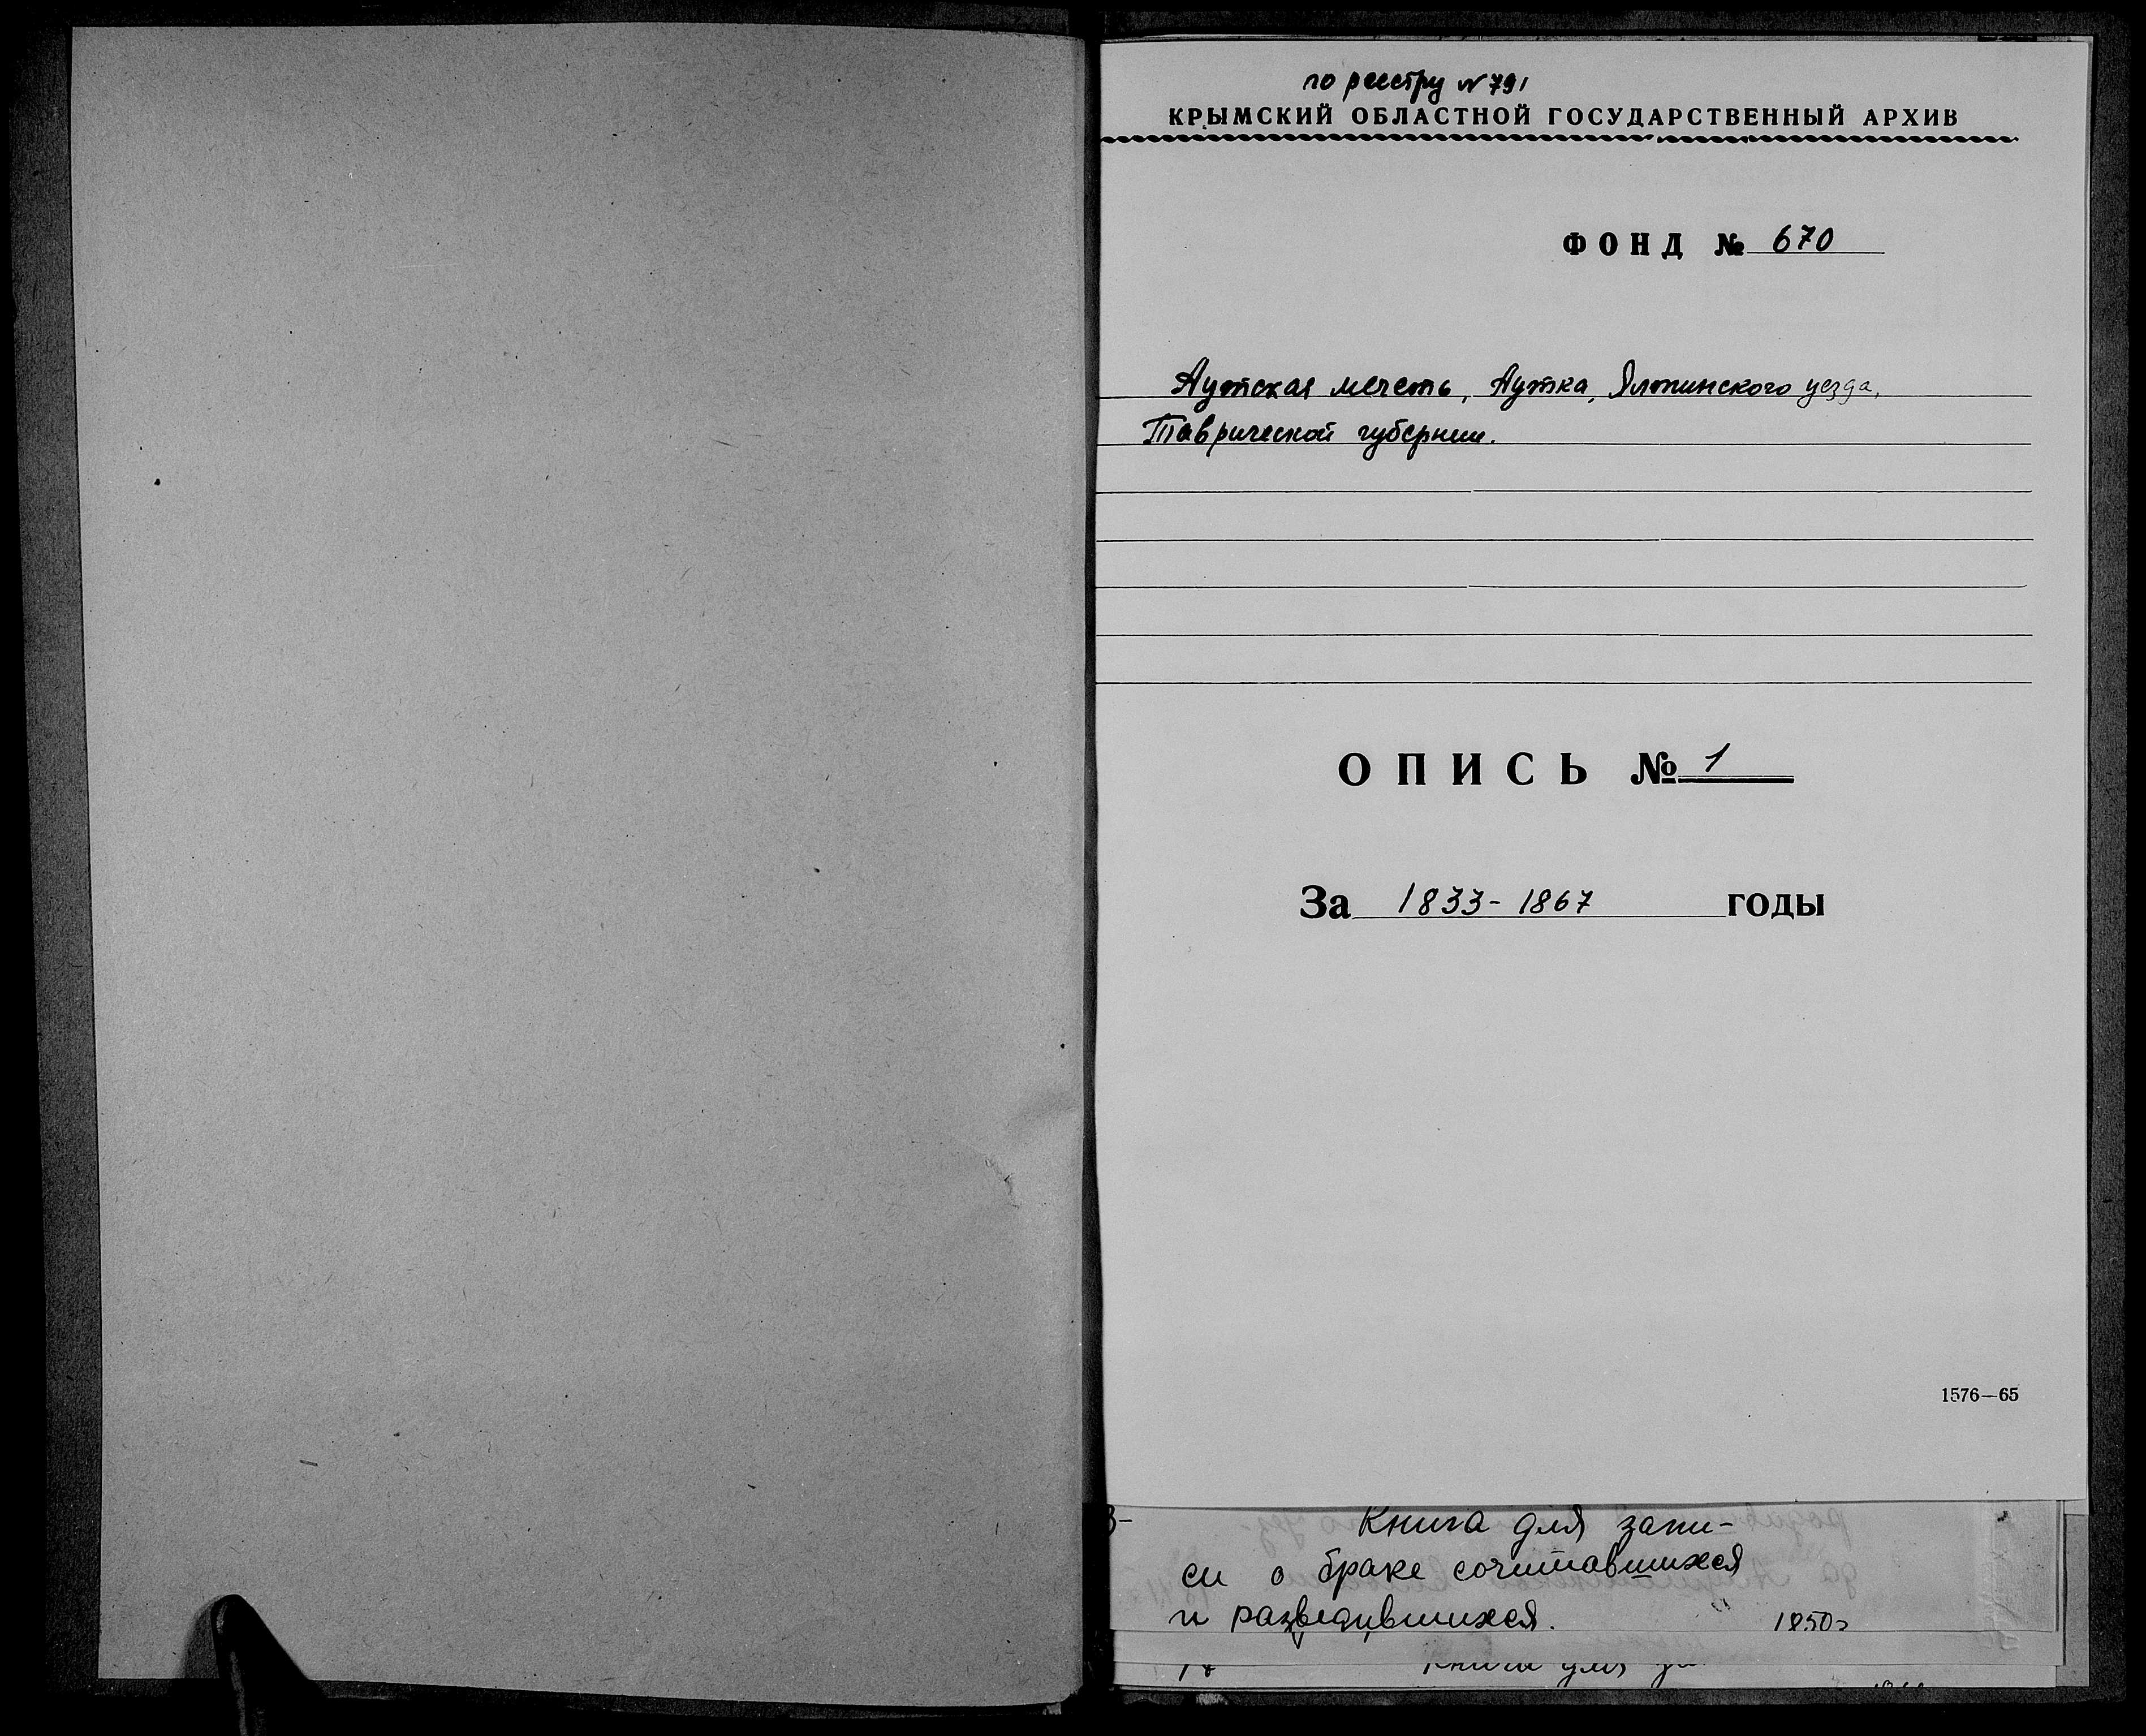 по реестру N 791
КРЫМСКИЙ ОБЛАСТНОЙ ГОСУДАРСТВЕННЫЙ АРХИВ
ФОНД № 670
Аутская мечеть, Аутка, Ялтинского уезда,
Таврической губернии.
ОПИСЬ № 1
За 1833-1867 годы
1576—65
Книга для запи-
си о браке сочитавшихся
и разведившихся. 1850г
Книга для